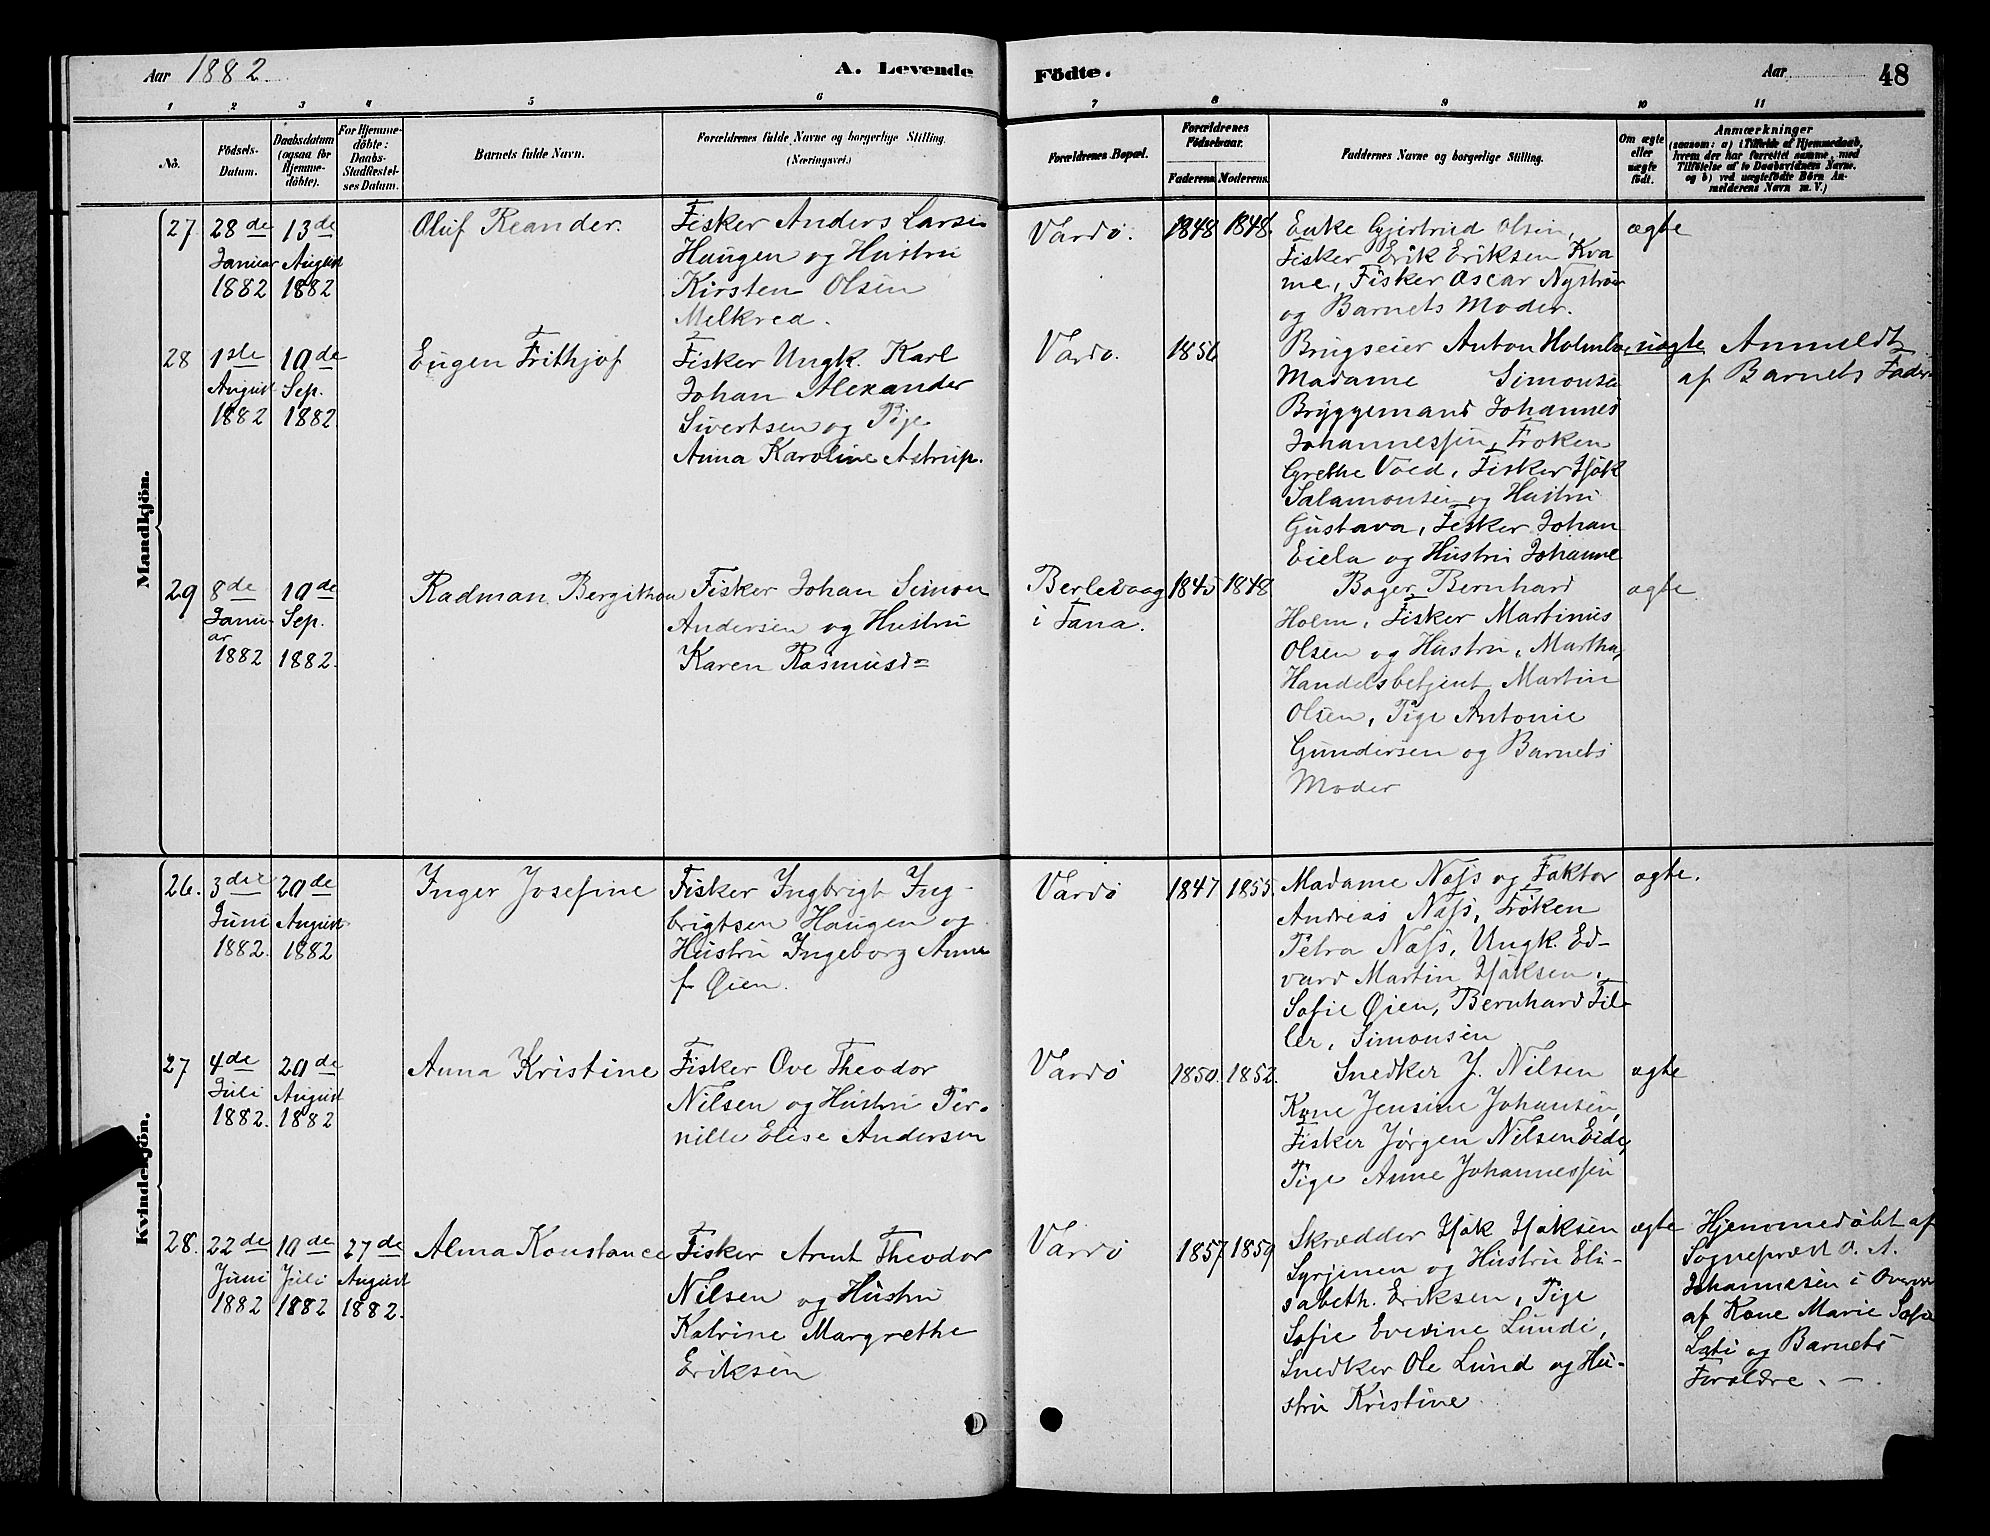 Aar 1882.
A. Levende Födte.
Aar 48
1 2 3 4 5 6 7 8 9 10 11
No.
Födsels-
Datum.
Daabsdatum
(ogsaa for
Hjemme-
döbte).
For Hjemme-
döbte:
Daabs-
Stadfæstel-
ses Datum.
Barnets fulde Navn.
Forældrenes fulde Navne og borgerlige Stilling.
(Næringsvei.)
Forældrenes Bopæl.
Forældrenes
Födselsaar.
Faderens. Moderens.
Faddernes Navne og borgerlige Stilling.
Om ægte
eller
uægte
födt.
Anmærkninger
(saasom: a) i Tilfælde af Hjemmedaab,
hvem der har forrettet samme, med
Tilföielse af to Daabsvidners Navne,
og b) ved uægtefödte Börn An-
melderens Navn m. V.)
Mandkjön.
27. 28de
Januar
1882
13de
August
1882
Oluf Reander.
Fisker Anders Larsen
Haugen og Hustru
Kirsten Olsen
Melkred.
Vardø. 1848 1848.
Enke Gjertrud Olsen,
Fisker Erik Eriksen Kva
me, Fisker Oscar Nystrøm
og Barnets Moder.
ægte
28 1ste
August
1882
10de
Sep.
1882.
Eugen Frithjof
Fisker Ungk. Karl
Johan Alexander
Sivertsen og Pige
Anna Karoline Astrup.
Vardø. 1856
Brugseier Anton Holmbo,
Madame Simonsen
Bryggemand Johannes
Johannessen, Frøken
Grethe Voed, Fisker Isak
Salamonsen og Hustru
Gustava, Fisker Johan
Eiela og Hustru Johanne
uægte
Anmeldt
af Barnets Fader
29 8de
Janu-
ar
1882
10de
Sep.
1882.
Radman Bergithon
Fisker Johan Simon
Andersen og Hustru
Karen Rasmusd=
Berlevaag
i Tana.
1845 1848
Bager Bernhard
Holm, Fisker Martinus
Olsen og Hustru, Martha,
Handelsbetjent Martin
Olsen, Pige Antonie
Gundersen og Barnets
Moder
ægte
Kvindekjön.
26. 3die
Juni
1882.
20de
August
1882
Inger Josefine
Fisker Ingbrigt Ing-
brigtsen Haugen og
Hustru Ingeborg Anna
f. Øien.
Vardø 1847 1855.
Madame Næss og Faktor
Andreas Næss, Frøken
Petra Næss, Ungk. Ed-
vard Martin Isaksen,
Sofie Øien, Bernhard Fil-
ler, Simonsen
ægte.
27 4de
Juli
1882.
20de
August
1882
Anna Kristine
Fisker Ove Theodor
Nilsen og Hustru Per-
nille Elise Andersen
Vardø 1850. 1852.
Snedker J. Nilsen
Kone Jensine Johansen,
Fisker Jørgen Nilsen Eide,
Pige Anne Johannessen
ægte
28. 22de
Juni
1882
10de
Juli
1882
27de
August
1882.
Alma Konstance
Fisker Arnt Theodor
Nilsen og Hustru
Katrine Margrethe
Eriksen
Vardø 1857 1859
Skrædder Isak Isaksen
Syrjenen og Hustru Eli-
sabeth. Eriksen, Pige
Sofie Evevine Lunde,
Snedker Ole Lund og Hu-
stru Kristine
ægte
Hjemmedøbt af
Sognepræst O. A.
Johannesen i Overvær
af Kone Marie Sofie
og Barnets
Forældre. —